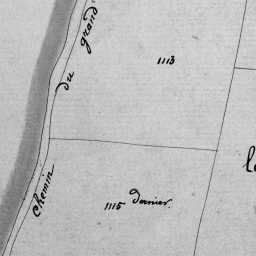 Chemin du grand
1113
1115 dernier.